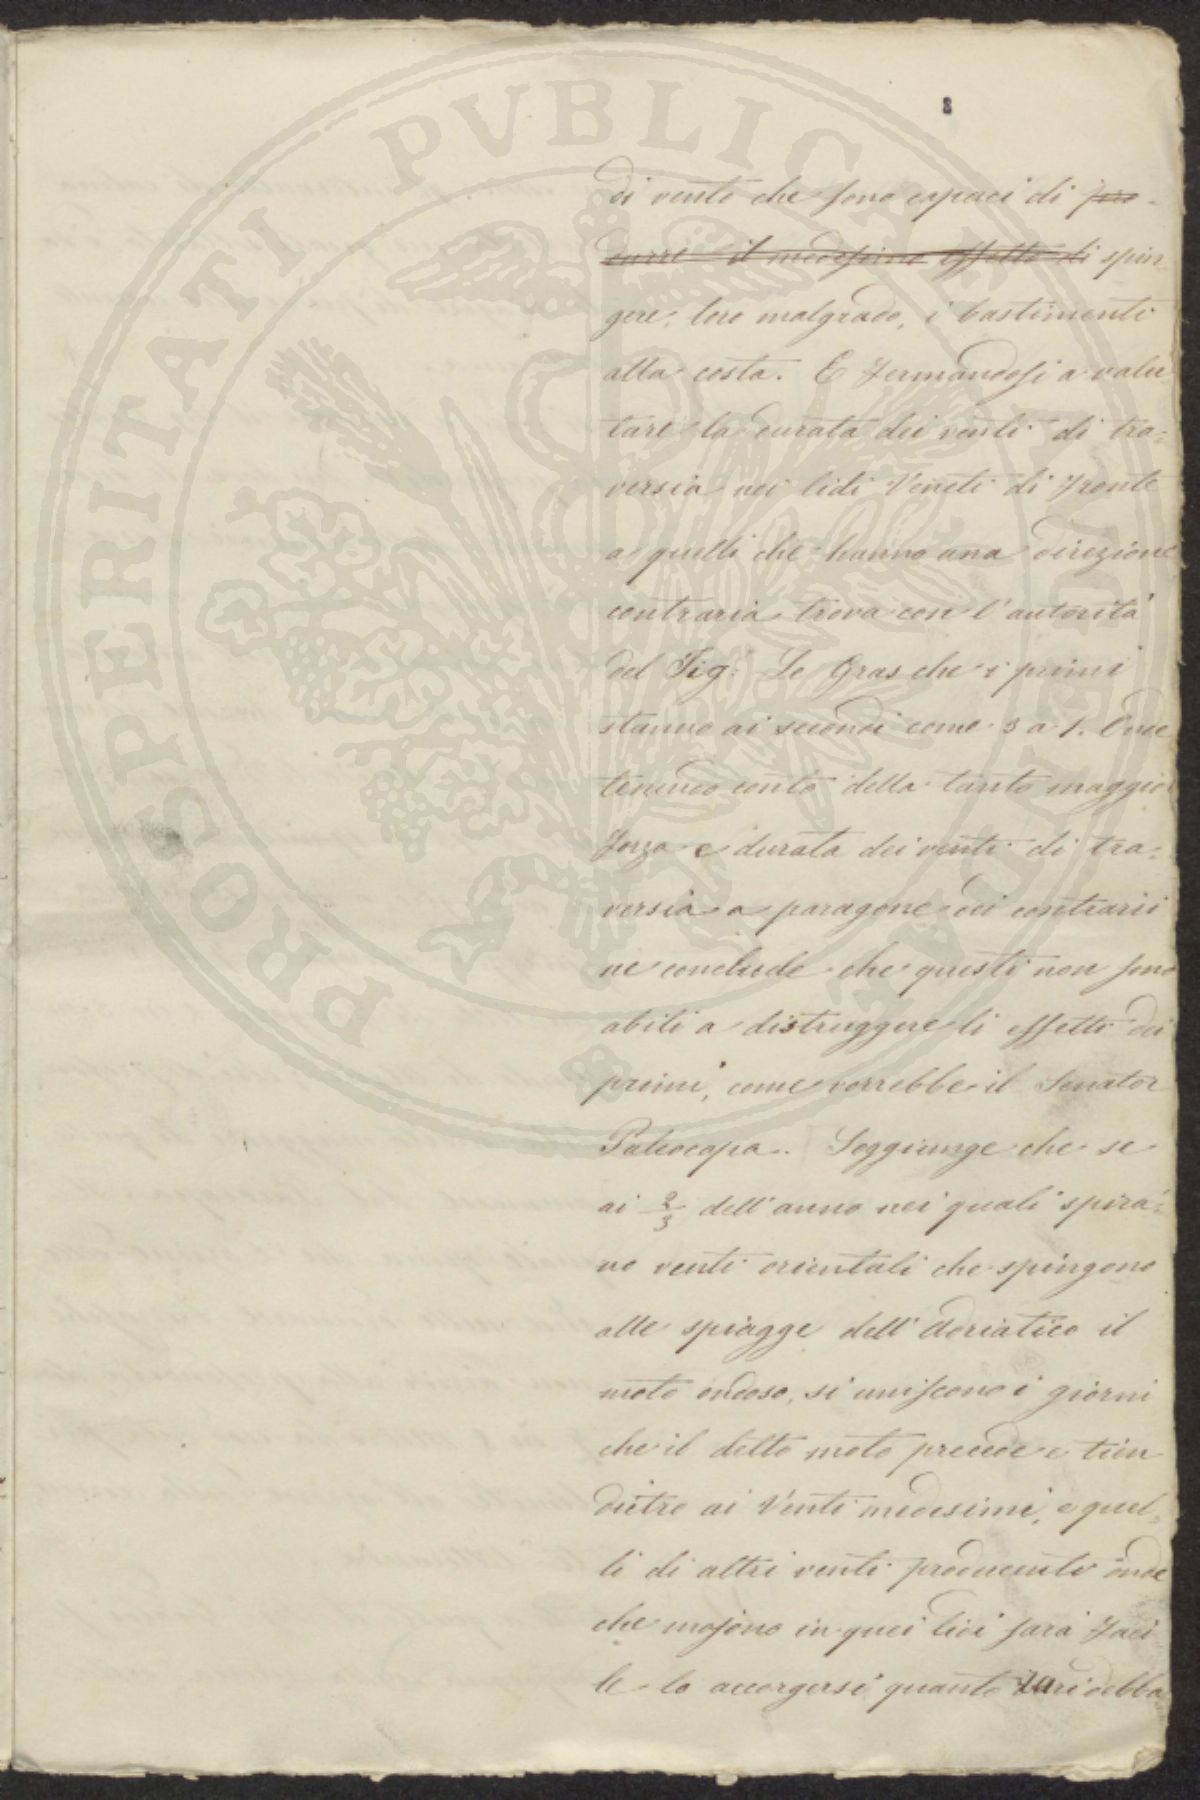 8
di vento che sono capaci di pro-
durre il medesimo effetto di spin
gere, loro malgrado, i bastimenti
alla costa. E fermandosi a valu
tare la durata dei venti di tra=
versia nei lidi Veneti di fronte
a quelli che hanno una direzione
contraria trova con l'autorità
del Sig: Le Gras che i primi
stanno ai secondi come 3 a 1. Onde
tenendo conto della tanto maggior
forza e durata dei venti di tra=
versia a paragone dei contrarii
ne conclude che questi non sono
abili a distruggere li effetti dei
primi, come vorrebbe il Senator
Paleocapa. Soggiunge che se
ai 2/3 dell'anno nei quali spira=
no venti orientali che spingono
alle spiagge dell'Adriatico il
moto ondoso, si uniscono i giorni
che il detto moto precede e tien
dietro ai Venti medesimi, e quel=
li di altri venti producenti onde
che muojono in quei lidi sarà faci
le lo accorgersi quanto debba
PROSPERITATI PVBLICAE